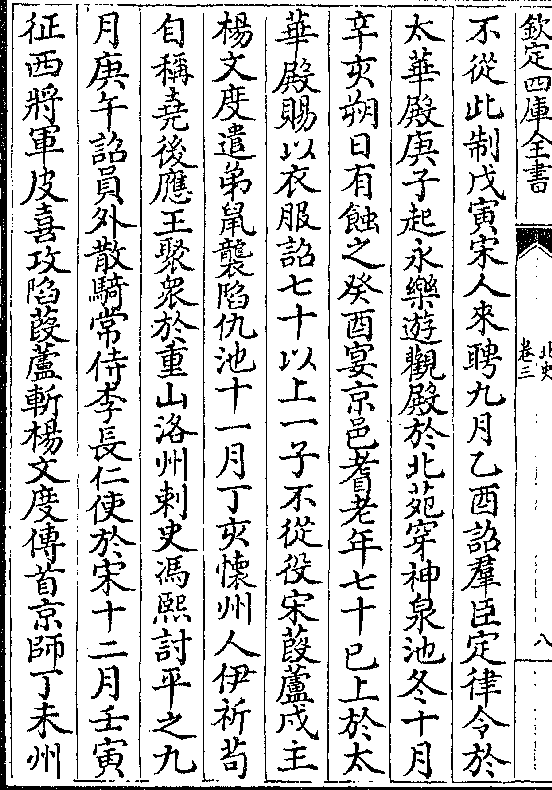 欽定四庫全書
北史
卷三
八
不從此制戊寅宋人來聘九月乙酉詔羣臣定律令於
太華殿庚子起永樂遊觀殿於北苑穿神泉池冬十月
辛亥朔日有蝕之癸酉宴京邑耆老年七十已上於太
華殿賜以衣服詔七十以上一子不從役宋葭蘆戍主
楊文度遣弟鼠襲陷仇池十一月丁亥懷州人伊祈茍
自稱堯後應王聚衆於重山洛州刺史馮熙討平之九
月庚午詔員外散騎常侍李長仁使於宋十二月壬寅
征西將軍皮喜攻陷葭蘆斬楊文度傳首京師丁未州